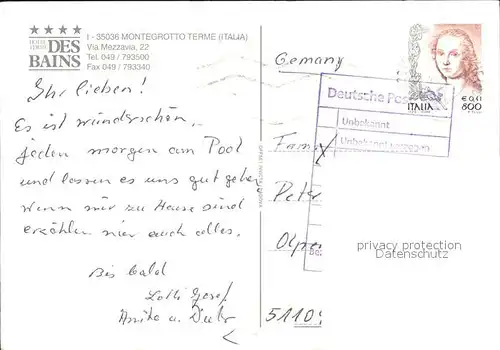 HOTEL TERME
DES
BAINS
I - 35036 MONTEGROTTO TERME (ITALIA)
Via Mezzavia, 22
Tel. 049 / 793500
Fax 049 / 793340
Ihr lieben!
Es ist wunderschön.
jeden morgen am Pool
und lassen es uns gut gehen
wenn wir zu Hause sind
erzählen wir auch alles.
Bis bald
Lotti Josef
Anita u.
Gemany
ITALIA
€ 0,41
800
Deutsche Post
Unbekannt
Unbekannt verzogen
Fam
Peter
Olpe
5110
privacy protection
Datenschutz